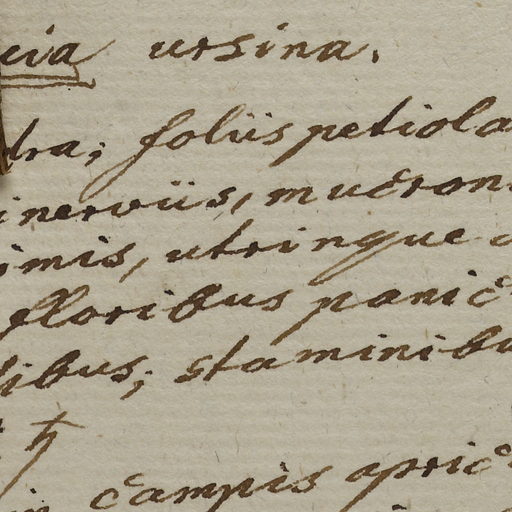 cia ursina.
dra; foliis petiola
inerviis, mucron
imis, utrinque
floribus panic
libus; staminibu
♄
in campis apric